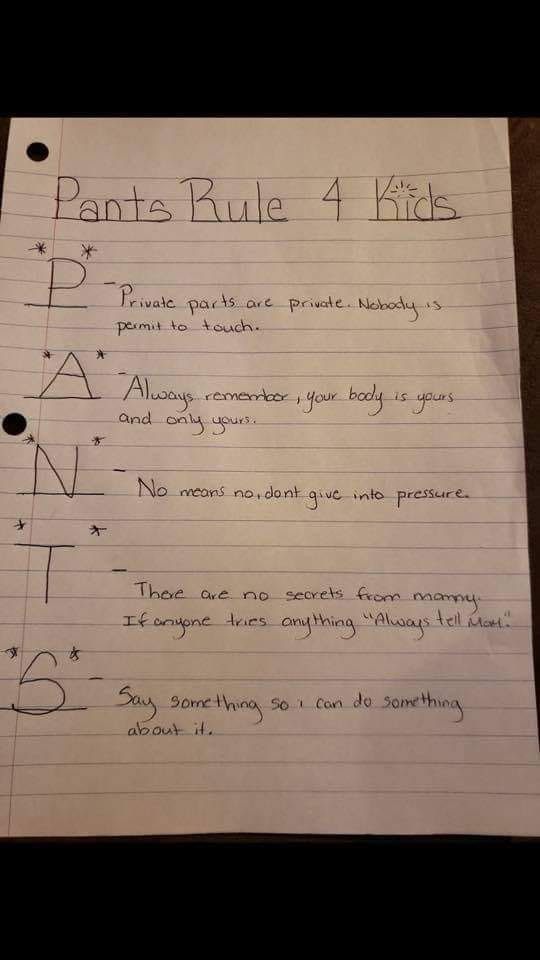 Pants Rule 4 Kids
* P * - Private parts are private. Nobody is
permit to touch.
* A * - Always remember, your body is yours
and only yours.
* N * - No means no, dont give into pressure.
* T * - There are no secrets from mommy.
If anyone tries anything "Always tell Mom".
* S * - Say something so i can do something
about it.